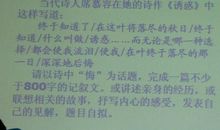 当代诗人席慕容在她的诗作《诱惑》中
这样写道:
终于知道了/在这叶将落尽的秋日/终于
知道/什么叫做/诱惑……而无论是哪一种选
择/都会使我流泪/使我/在叶终于落尽的那一
日/深深地后悔
请以诗中“悔”为话题,完成一篇不少
于800字的记叙文。或讲述亲身的经历,或
联想相关的故事,抒写内心的感受,发表自
己的见解。题目自拟。